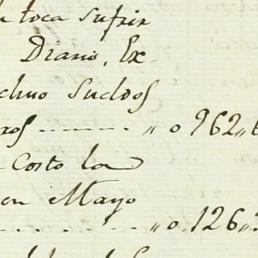 toca sufrir
Diario, Ex-
Sueldos
ros ------- " 0 962 "
Costo la
en Mayo
" 0 126 "